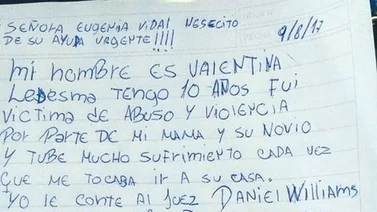 SEÑOLA EUGENIA VIDAL NESECITO
DE SU AYUDA URGENTE!!!!
9/8/17
Mi nombre ES VALENTINA
LEDESMA TENGO 10 AÑOS FUI
VICTIMA DE ABUSO Y VIOLENCIA
POR PARTE DE MI MAMA Y SU NOVIO
Y TUBE MUCHO SUFRIMIENTO CADA VEZ
QUE ME TOCABA IR A SU CASA.
YO LE CONTE AL JUEZ DANIEL WILLIAMS